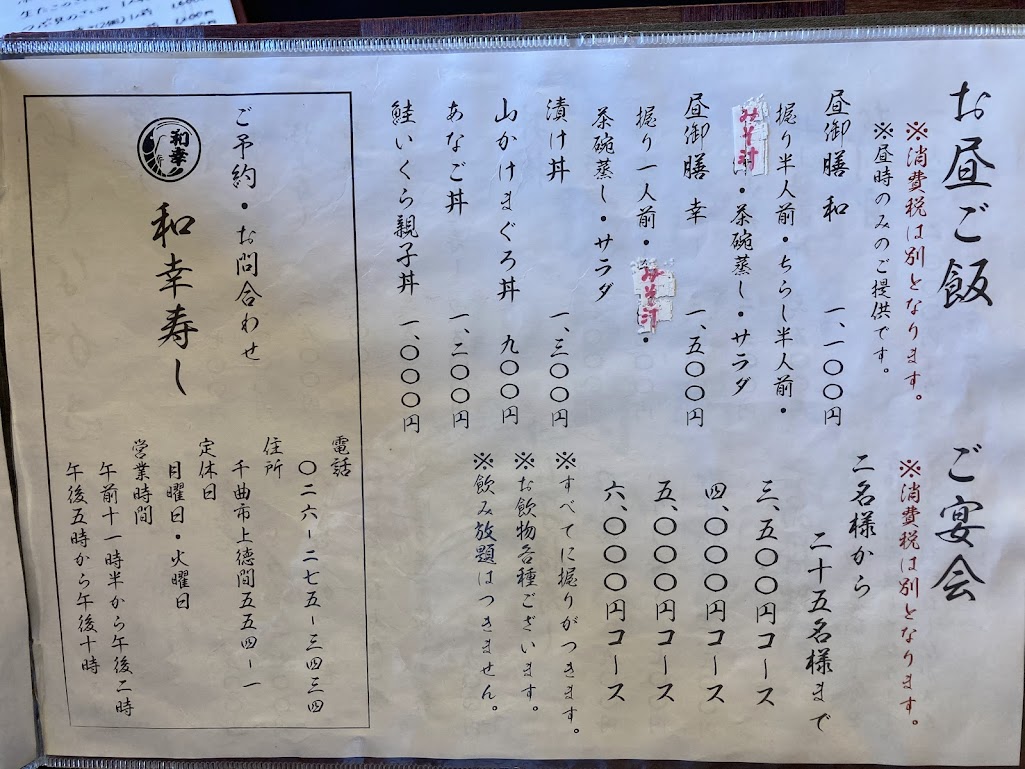 お昼ご飯
※消費税は別となります。
※昼時のみのご提供です。
昼御膳 和 一、一〇〇円
握り半人前・ちらし半人前・
みそ汁・茶碗蒸し・サラダ
昼御膳 幸 一、五〇〇円
握り一人前・みそ汁・
茶碗蒸し・サラダ
漬け丼 一、三〇〇円
山かけまぐろ丼 九〇〇円
あなご丼 一、二〇〇円
鮭いくら親子丼 一、〇〇〇円
ご宴会
※消費税は別となります。
二名様から
二十五名様まで
三、五〇〇円コース
四、〇〇〇円コース
五、〇〇〇円コース
六、〇〇〇円コース
※すべてに握りがつきます。
※お飲物各種ございます。
※飲み放題はつきません。
ご予約・お問合わせ
和幸
和幸寿し
電話
〇二六-二七五-三四三四
住所
千曲市上徳間五五四-一
定休日
月曜日・火曜日
営業時間
午前十一時半から午後二時
午後五時から午後十時